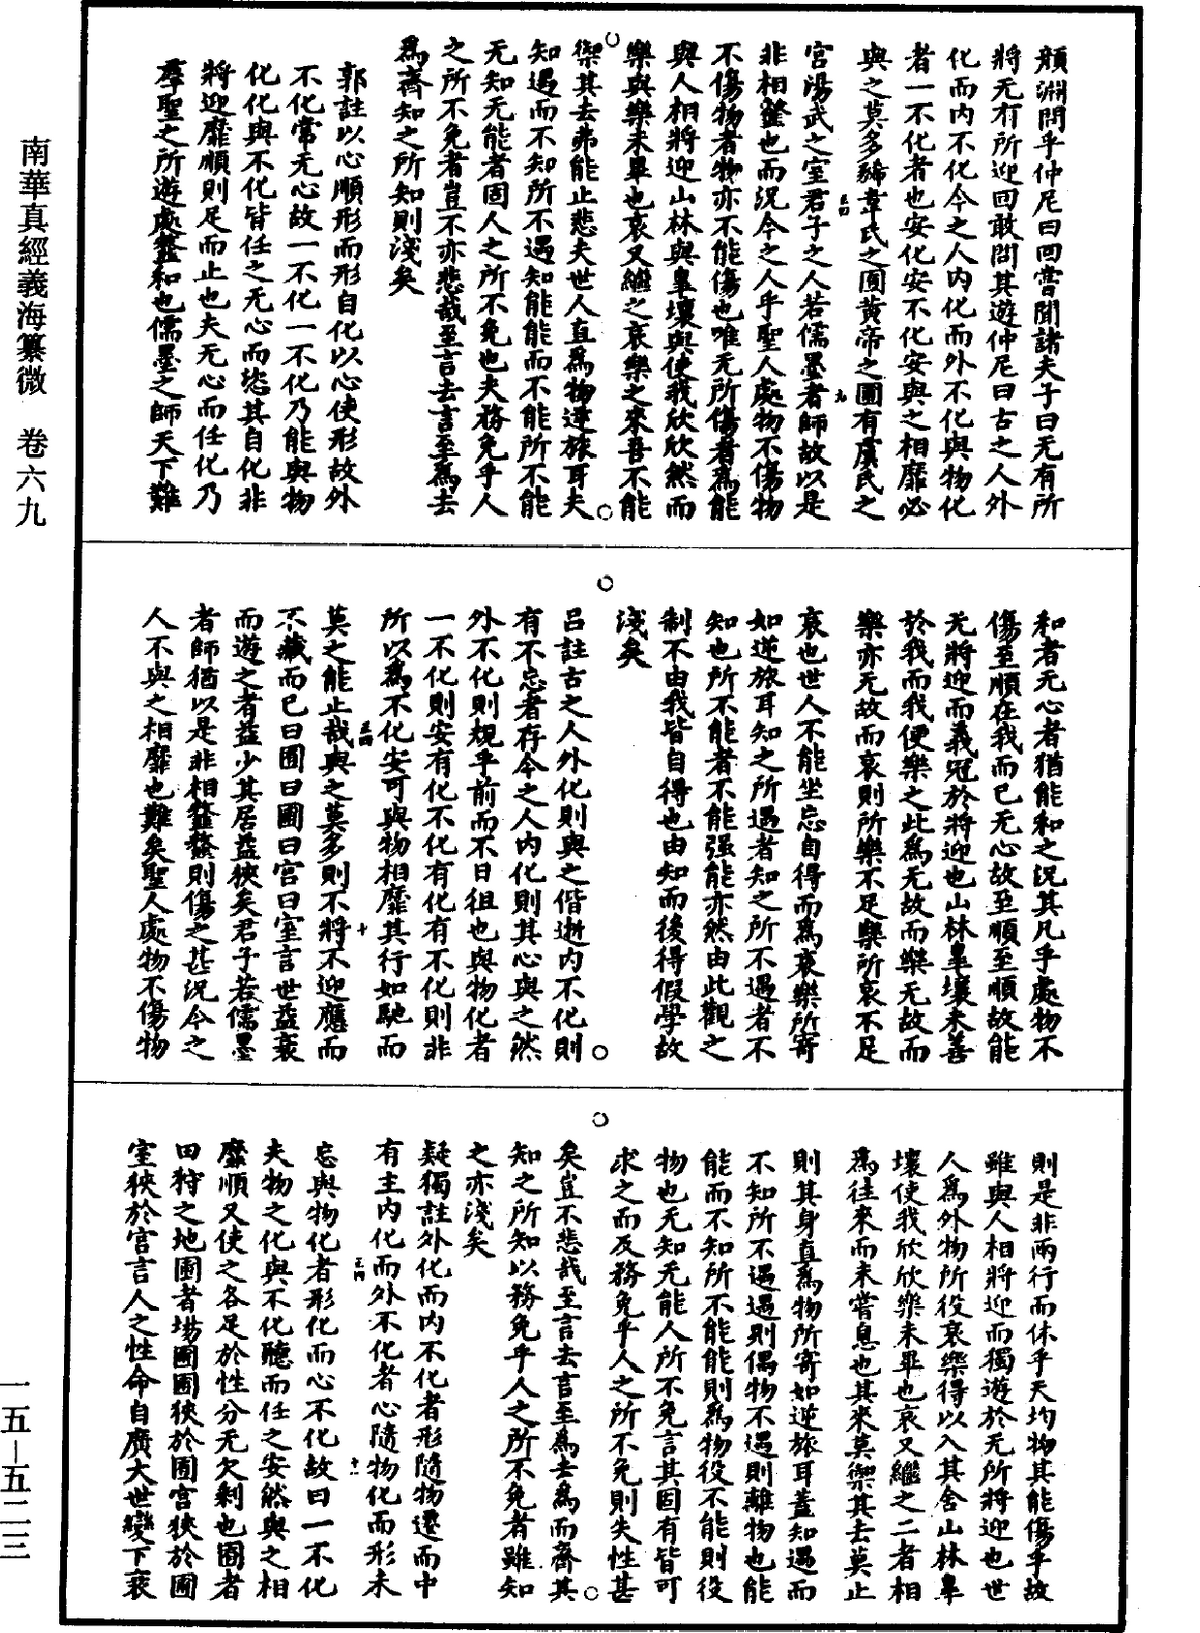 南華真經義海纂微　卷六九
一五—五二三
顏淵問乎仲尼曰回嘗聞諸夫子曰无有所
將无有所迎回敢問其遊仲尼曰古之人外
化而內不化今之人內化而外不化與物化
者一不化者也安化安不化安與之相靡必
與之莫多狶韋氏之囿黃帝之圃有虞氏之
宮湯武之室君子之人若儒墨者師故以是
非相𩐎也而況今之人乎聖人處物不傷物
不傷物者物亦不能傷也唯无所傷者爲能
與人相將迎山林與臯壤與使我欣欣然而
樂與樂未畢也哀又繼之哀樂之來吾不能
禦其去弗能止悲夫世人直爲物逆旅耳夫
知遇而不知所不遇知能能而不能所不能
无知无能者固人之所不免也夫務免乎人
之所不免者豈不亦悲哉至言去言至爲去
爲齊知之所知則淺矣
郭註以心順形而形自化以心使形故外
不化常无心故一不化一不化乃能與物
化化與不化皆任之无心而恣其自化非
將迎靡順則足而止也夫无心而任化乃
羣聖之所遊處𩐎和也儒墨之師天下難
和者无心者猶能和之況其凡乎處物不
傷至順在我而已无心故至順至順故能
无將迎而義冠於將迎也山林臯壤未善
於我而我便樂之此爲无故而樂无故而
樂亦无故而哀則所樂不足樂所哀不足
哀也世人不能坐忘自得而爲哀樂所寄
如逆旅耳知之所遇者知之所不遇者不
知也所不能者不能强能亦然由此觀之
制不由我皆自得也由知而後得假學故
淺矣
呂註古之人外化則與之偕逝內不化則
有不忘者存今之人內化則其心與之然
外不化則規乎前而不日徂也與物化者
一不化則安有化不化有化有不化則非
所以爲不化安可與物相靡其行如馳而
莫之能止哉與之莫多則不將不迎應而
不藏而已曰囿曰圃曰宮曰室言世益衰
而遊之者益少其居益狹矣君子若儒墨
者師猶以是非相𩐎𩐎則傷之甚況今之
人不與之相靡也難矣聖人處物不傷物
則是非兩行而休乎天均物其能傷乎故
雖與人相將迎而獨遊於无所將迎也世
人爲外物所役哀樂得以入其舍山林臯
壤使我欣欣樂未畢也哀又繼之二者相
爲往來而未嘗息也其來莫禦其去莫止
則其身直爲物所寄如逆旅耳蓋知遇而
不知所不遇遇則偶物不遇則離物也能
能而不知所不能能則爲物役不能則役
物也无知无能人所不免言其固有皆可
求之而反務免乎人之所不免則失性甚
矣豈不悲哉至言去言至爲去爲而齊其
知之所知以務免乎人之所不免者雖知
之亦淺矣
疑獨註外化而內不化者形隨物遷而中
有主內化而外不化者心隨物化而形未
忘與物化者形化而心不化故曰一不化
夫物之化與不化聽而任之安然與之相
靡順又使之各足於性分无欠剩也囿者
田狩之地圃者場圃圃狹於囿宮狹於圃
室狹於宮言人之性命自廣大世變下衰